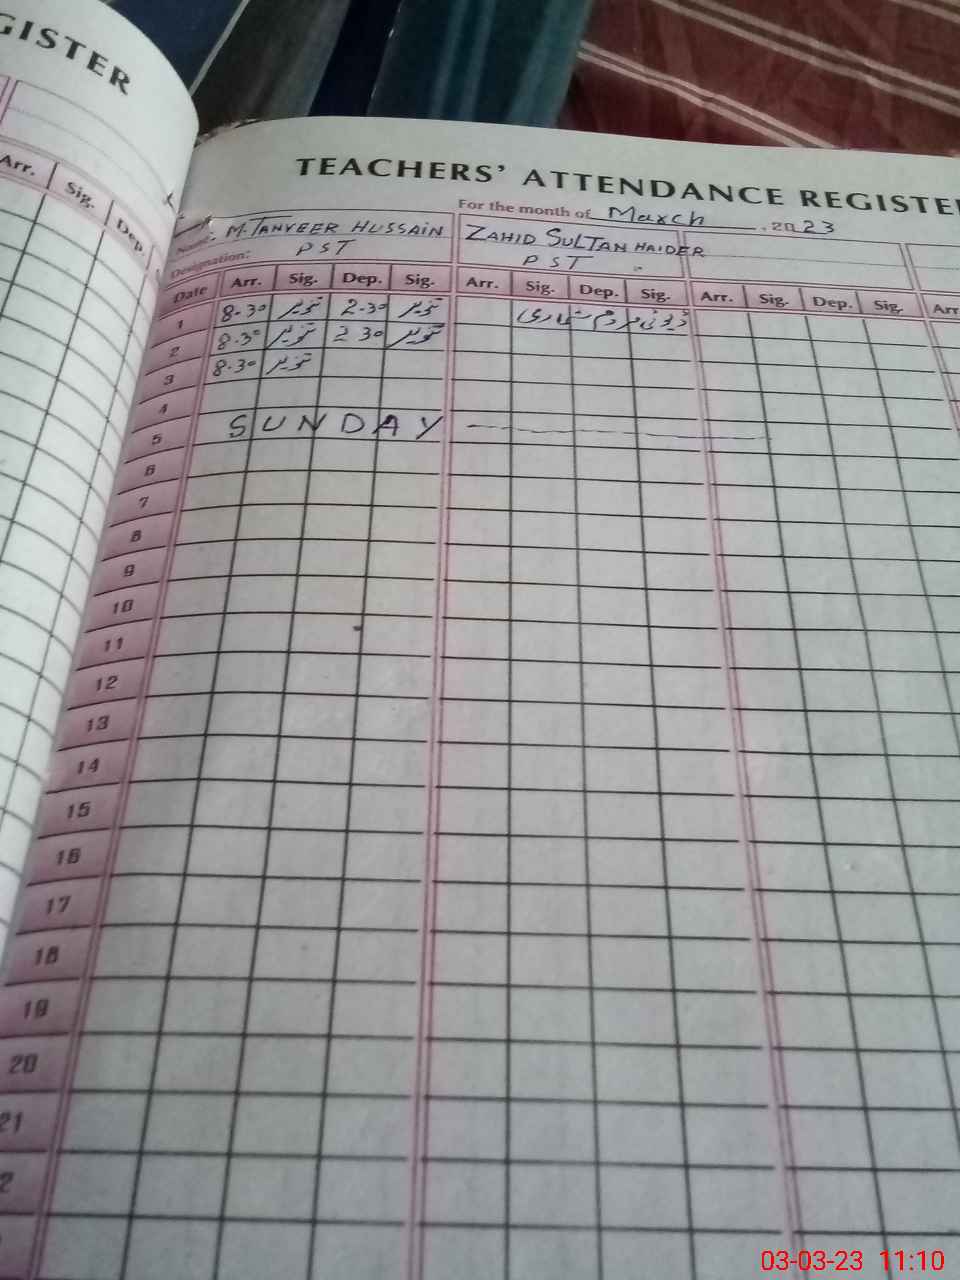 GISTER
Arr. Sig. Dep.
TEACHERS' ATTENDANCE REGISTE
For the month of March 2023
Name: M. TANVEER HUSSAIN ZAHID SULTAN HAIDER
Designation: PST PST
Date Arr. Sig. Dep. Sig. Arr. Sig. Dep. Sig. Arr. Sig. Dep. Sig. Arr
1 8.30 تنویر 2.30 تنویر ڈیوٹی مردم شماری
2 8.30 تنویر 2 30 تنویر
3 8.30 تنویر
4
5 SUNDAY
6
7
8
9
10
11
12
13
14
15
16
17
18
19
20
21
2
03-03-23 11:10